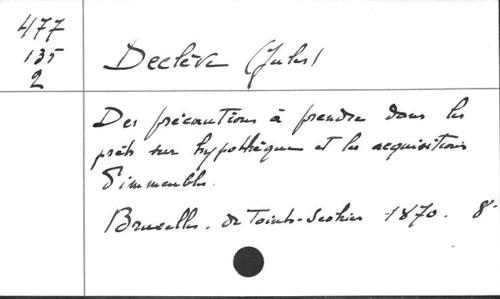 477
135
2
Declève (Jules)
Des précautions à prendre dans les
prêts sur hypothèques et les acquisitions
d'immeubles.
Bruxelles. de Toints-Scohier 1870. 8°